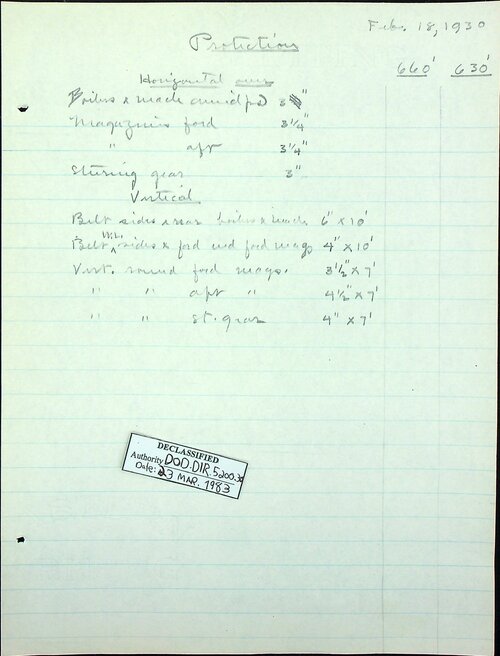 Feb. 18, 1930
Protection
660' 630'
Horizontal over
Boilers & mach. amidps 3"
Magazines forwd 3 1/4"
" aft 3 1/4"
Steering gear 3"
Vertical
Belt sides & rear boilers & mach. 6" x 10'
Belt W.L. sides & forwd end forwd mags 4" x 10'
Vert. round forwd mags. 3 1/2" x 7'
" " aft " 4 1/2" x 7'
" " st. gear 4" x 7'
DECLASSIFIED
Authority DOD.DIR.5200.30
Date: 23 MAR. 1983